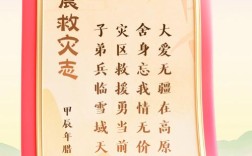 震救灾志
大爱无疆在高原
舍身忘我情无价
灾区救援勇当前
子弟兵临雪域天
甲辰年腊